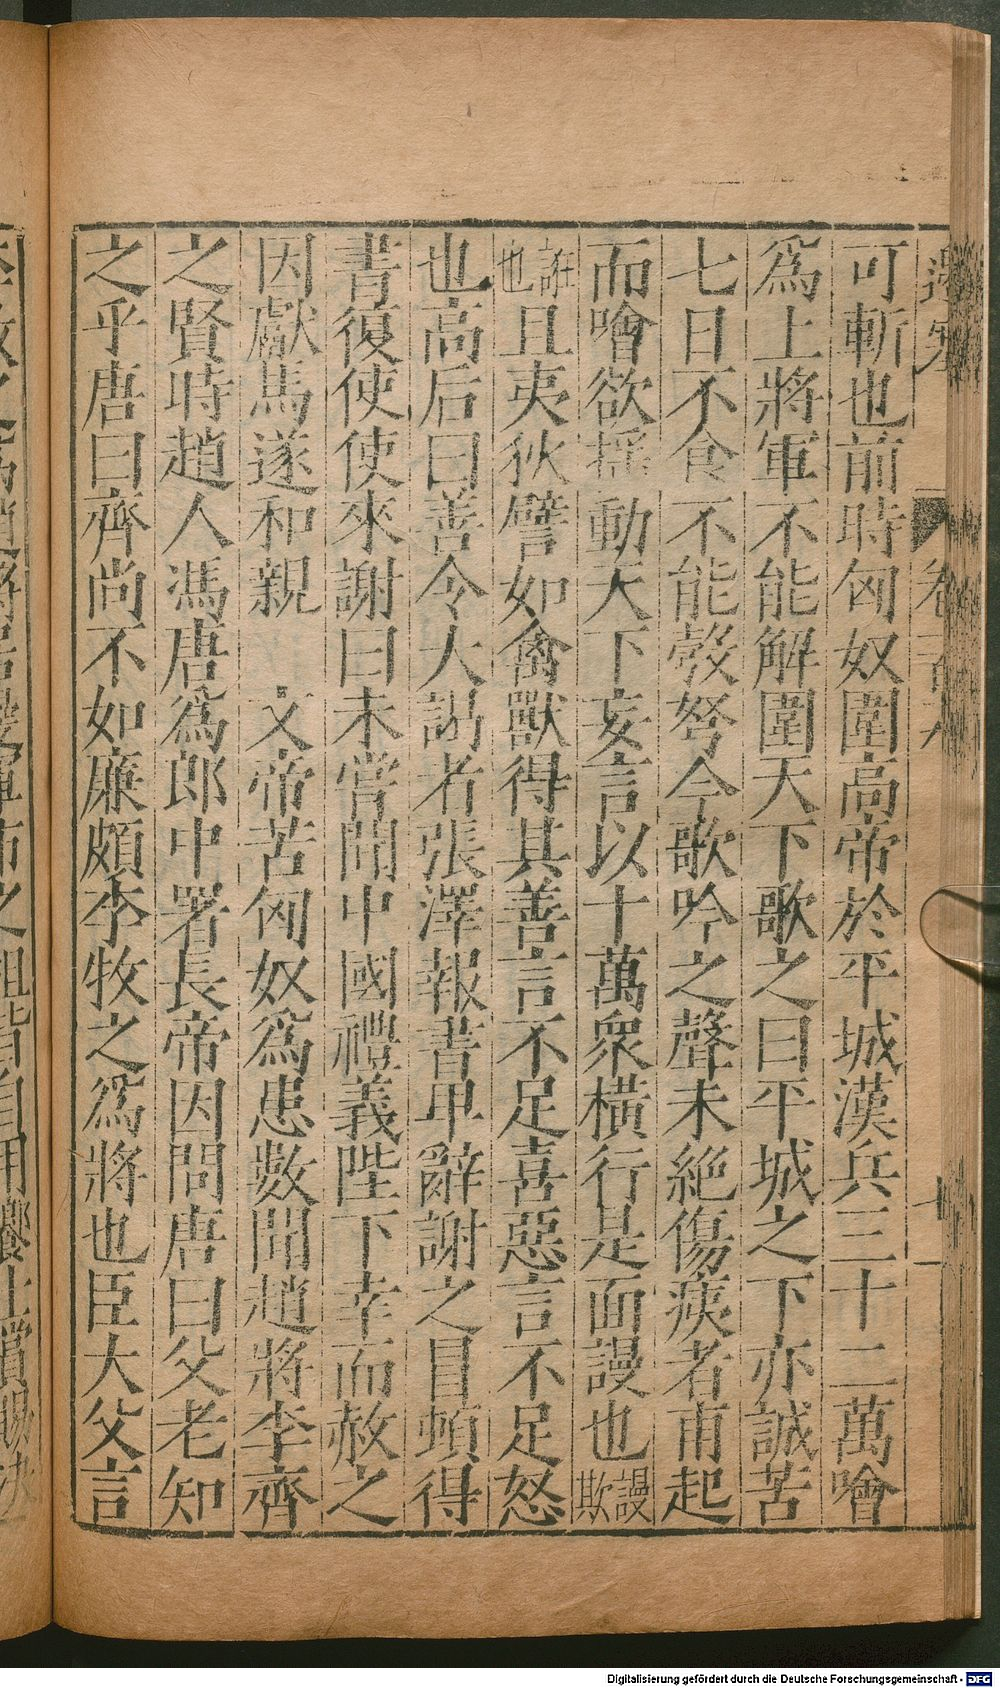 可斬也前時匈奴圍高帝於平城漢兵三十二萬噲
爲上將軍不能解圍天下歌之曰平城之下亦誠苦
七日不食不能彀弩今歌吟之聲未絶傷痍者甫起
而噲欲揺動天下妄言以十萬衆橫行是面謾也謾欺
誑也且夷狄譬如禽獸得其善言不足喜惡言不足怒
也高后曰善令大謁者張澤報書卑辭謝之冒頓得
書復使使來謝曰未嘗聞中國禮義陛下幸而赦之
因獻馬遂和親　文帝苦匈奴爲患數聞趙將李齊
之賢時趙人馮唐爲郎中署長帝因問唐曰父老知
之乎唐曰齊尚不如廉頗李牧之爲將也臣大父言
Digitalisierung gefördert durch die Deutsche Forschungsgemeinschaft - DFG